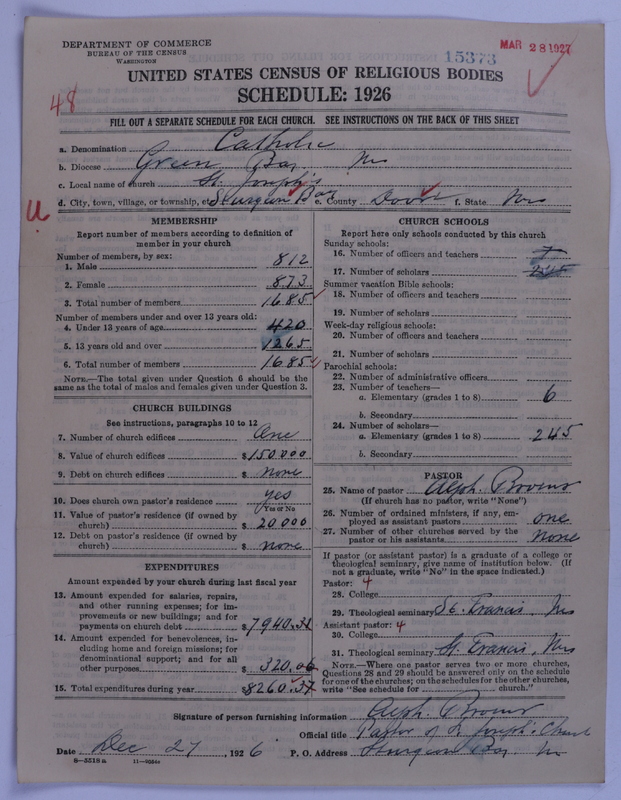 DEPARTMENT OF COMMERCE
BUREAU OF THE CENSUS
WASHINGTON
15373
MAR 28 1927
UNITED STATES CENSUS OF RELIGIOUS BODIES
SCHEDULE: 1926
48
FILL OUT A SEPARATE SCHEDULE FOR EACH CHURCH. SEE INSTRUCTIONS ON THE BACK OF THIS SHEET
a. Denomination Catholic
b. Diocese Green Bay Wis
c. Local name of church St. Joseph's
d. City, town, village, or township, etc. Sturgeon Bay e. County Door f. State Wis
MEMBERSHIP
Report number of members according to definition of
member in your church
Number of members, by sex:
1. Male 812
2. Female 873
3. Total number of members 1685
Number of members under and over 13 years old:
4. Under 13 years of age 420
5. 13 years old and over 1265
6. Total number of members 1685
NOTE.—The total given under Question 6 should be
same as the total of males and females given under Question 3.
CHURCH BUILDINGS
See instructions, paragraphs 10 to 12
7. Number of church edifices One
8. Value of church edifices $150.000
9. Debt on church edifices $ none
10. Does church own pastor's residence yes
Yes or No
11. Value of pastor's residence (if owned by
church) $ 20.000
12. Debt on pastor's residence (if owned by
church) $ none
EXPENDITURES
Amount expended by your church during last fiscal year
13. Amount expended for salaries, repairs,
and other running expenses; for im-
provements or new buildings; and for
payments on church debt $7940.31
14. Amount expended for benevolences, in-
cluding home and foreign missions; for
denominational support; and for all
other purposes $ 320.06
15. Total expenditures during year $8260.37
CHURCH SCHOOLS
Report here only schools conducted by this church
Sunday schools:
16. Number of officers and teachers 7
17. Number of scholars 245
Summer vacation Bible schools:
18. Number of officers and teachers
19. Number of scholars
Week-day religious schools:
20. Number of officers and teachers
21. Number of scholars
Parochial schools:
22. Number of administrative officers
23. Number of teachers—
a. Elementary (grades 1 to 8) 6
b. Secondary
24. Number of scholars—
a. Elementary (grades 1 to 8) 245
b. Secondary
PASTOR
25. Name of pastor Alph. Broens
(If church has no pastor, write "None")
26. Number of ordained ministers, if any, em-
ployed as assistant pastors one
27. Number of other churches served by the
pastor or his assistants none
If pastor (or assistant pastor) is a graduate of a college or
theological seminary, give name of institution below. (If
not a graduate, write "No" in the space indicated.)
Pastor: 4
28. College
29. Theological seminary St. Francis Wis
Assistant pastor: 4
30. College
31. Theological seminary St. Francis, Wis
NOTE.—Where one pastor serves two or more churches,
Questions 28 and 29 should be answered only on the schedule
for one of the churches; on the schedules for the other churches,
write "See schedule for church."
Signature of person furnishing information Alph. Broens
Official title Pastor of St Joseph's Church
Date Dec 27, 1926 P. O. Address Sturgeon Bay Wis
8—5518a 11—9034a